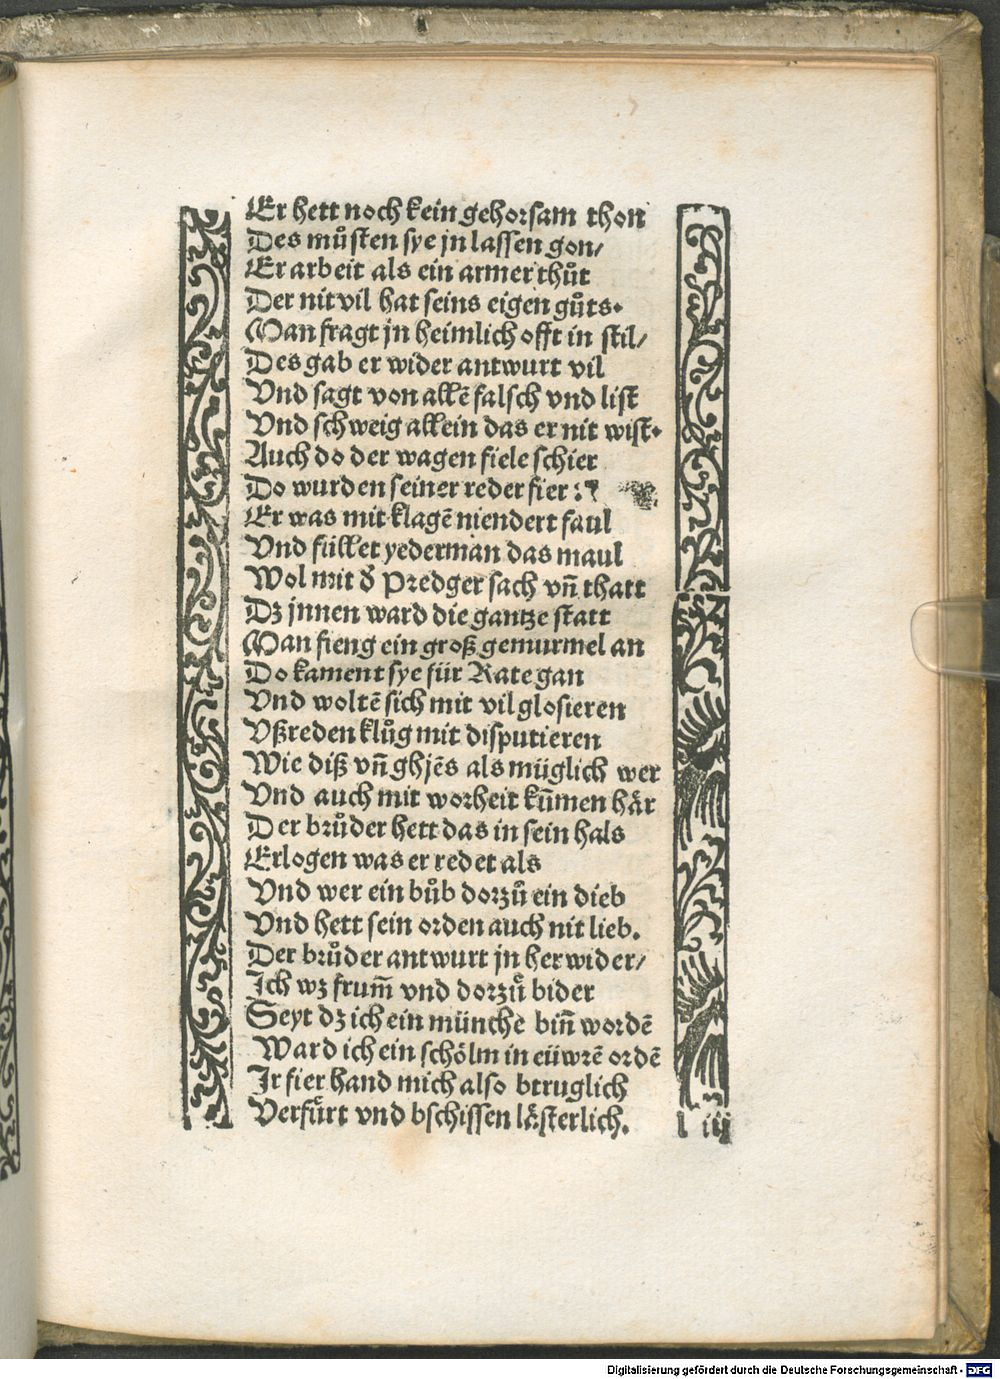 Er hett noch kein gehorsam thon
Des muͦsten sye jn lassen gon/
Er arbeit als ein armer thuͦt
Der nit vil hat seins eigen guͦts.
Man fragt jn heimlich offt in stil/
Des gab er wider antwurt vil
Vnd sagt von allē falsch vnd list
Vnd schweig allein das er nit wist.
Auch do der wagen fiele schier
Do wurden seiner reder fier
Er was mit klagē niendert faul
Vnd füllet yederman das maul
Wol mit d̕ Predger sach vn̄ thatt
Dz jnnen ward die gantze statt
Man fieng ein groß gemurmel an
Do kament sye für Rate gan
Vnd woltē sich mit vil glosieren
Vßreden kluͦg mit disputieren
Wie diß vn̄ ghjēs als müglich wer
Vnd auch mit worheit kūmen haͤr
Der bruͦder hett das in sein hals
Erlogen was er redet als
Vnd wer ein buͦb dorzuͦ ein dieb
Vnd hett sein orden auch nit lieb.
Der bruͦder antwurt jn herwider/
Ich wz frum̄ vnd dorzuͦ bider
Seyt dz ich ein münche bin̄ wordē
Ward ich ein schoͤlm in eüwrē ordē
Ir fier hand mich also btruglich
Verfuͤrt vnd bschissen laͤsterlich.
l iij
Digitalisierung gefördert durch die Deutsche Forschungsgemeinschaft - DFG